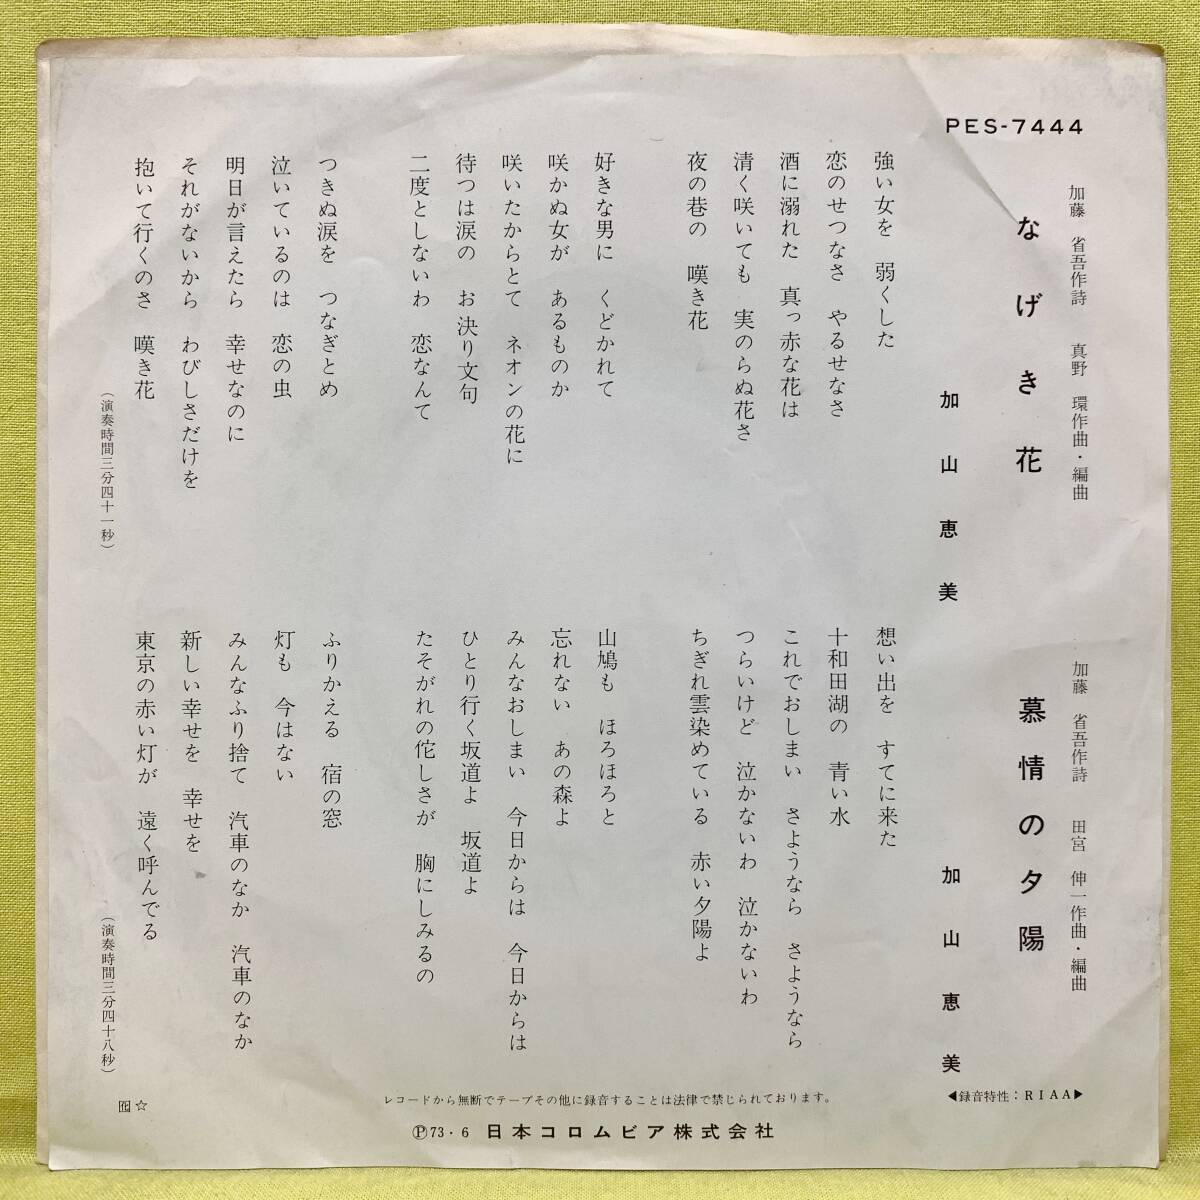 PES-7444
加藤 省吾作詩 真野 環作曲・編曲
なげき花
加山恵美
強い女を 弱くした
恋のせつなさ やるせなさ
酒に溺れた 真っ赤な花は
清く咲いても 実のらぬ花さ
夜の巷の 嘆き花
好きな男に くどかれて
咲かぬ女が あるものか
咲いたからとて ネオンの花に
待つは涙の お決り文句
二度としないわ 恋なんて
つきぬ涙を つなぎとめ
泣いているのは 恋の虫
明日が言えたら 幸せなのに
それがないから わびしさだけを
抱いて行くのさ 嘆き花
(演奏時間三分四十一秒)
加藤 省吾作詩 田宮 伸一作曲・編曲
慕情の夕陽
加山恵美
想い出を すてに来た
十和田湖の 青い水
これでおしまい さようなら さようなら
つらいけど 泣かないわ 泣かないわ
ちぎれ雲染めている 赤い夕陽よ
山鳩も ほろほろと
忘れない あの森よ
みんなおしまい 今日からは 今日からは
ひとり行く坂道よ 坂道よ
たそがれの侘しさが 胸にしみるの
ふりかえる 宿の窓
灯も 今はない
みんなふり捨て 汽車のなか 汽車のなか
新しい幸せを 幸せを
東京の赤い灯が 遠く呼んでる
(演奏時間三分四十八秒)
◀録音特性：RIAA▶
レコードから無断でテープその他に録音することは法律で禁じられております。
Ⓟ73・6 日本コロムビア株式会社
☆